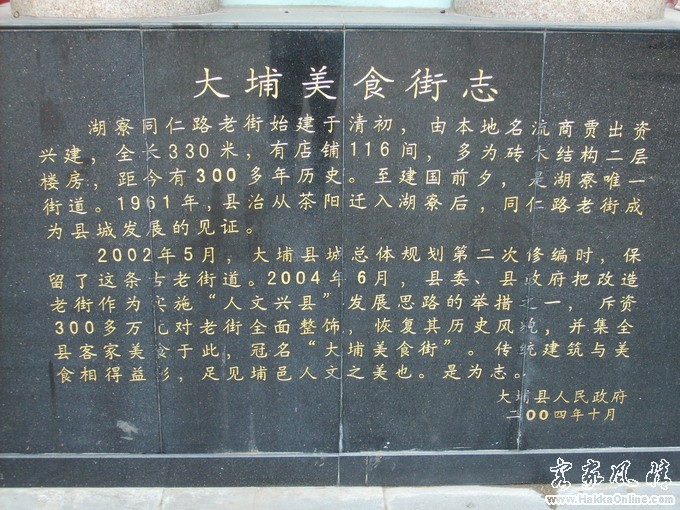 大埔美食街志
湖寮同仁路老街始建于清初，由本地名流商贾出资
兴建，全长330米，有店铺116间，多为砖木结构二层
楼房，距今有300多年历史。至建国前夕，是湖寮唯一
街道。1961年，县治从茶阳迁入湖寮后，同仁路老街成
为县城发展的见证。
2002年5月，大埔县城总体规划第二次修编时，保
留了这条古老街道。2004年6月，县委、县政府把改造
老街作为实施“人文兴县”发展思路的举措之一，斥资
300多万元对老街全面整饰，恢复其历史风貌，并集全
县客家美食于此，冠名“大埔美食街”。传统建筑与美
食相得益彰，足见埔邑人文之美也。是为志。
大埔县人民政府
二〇〇四年十月
客家风情
www.HakkaOnline.com